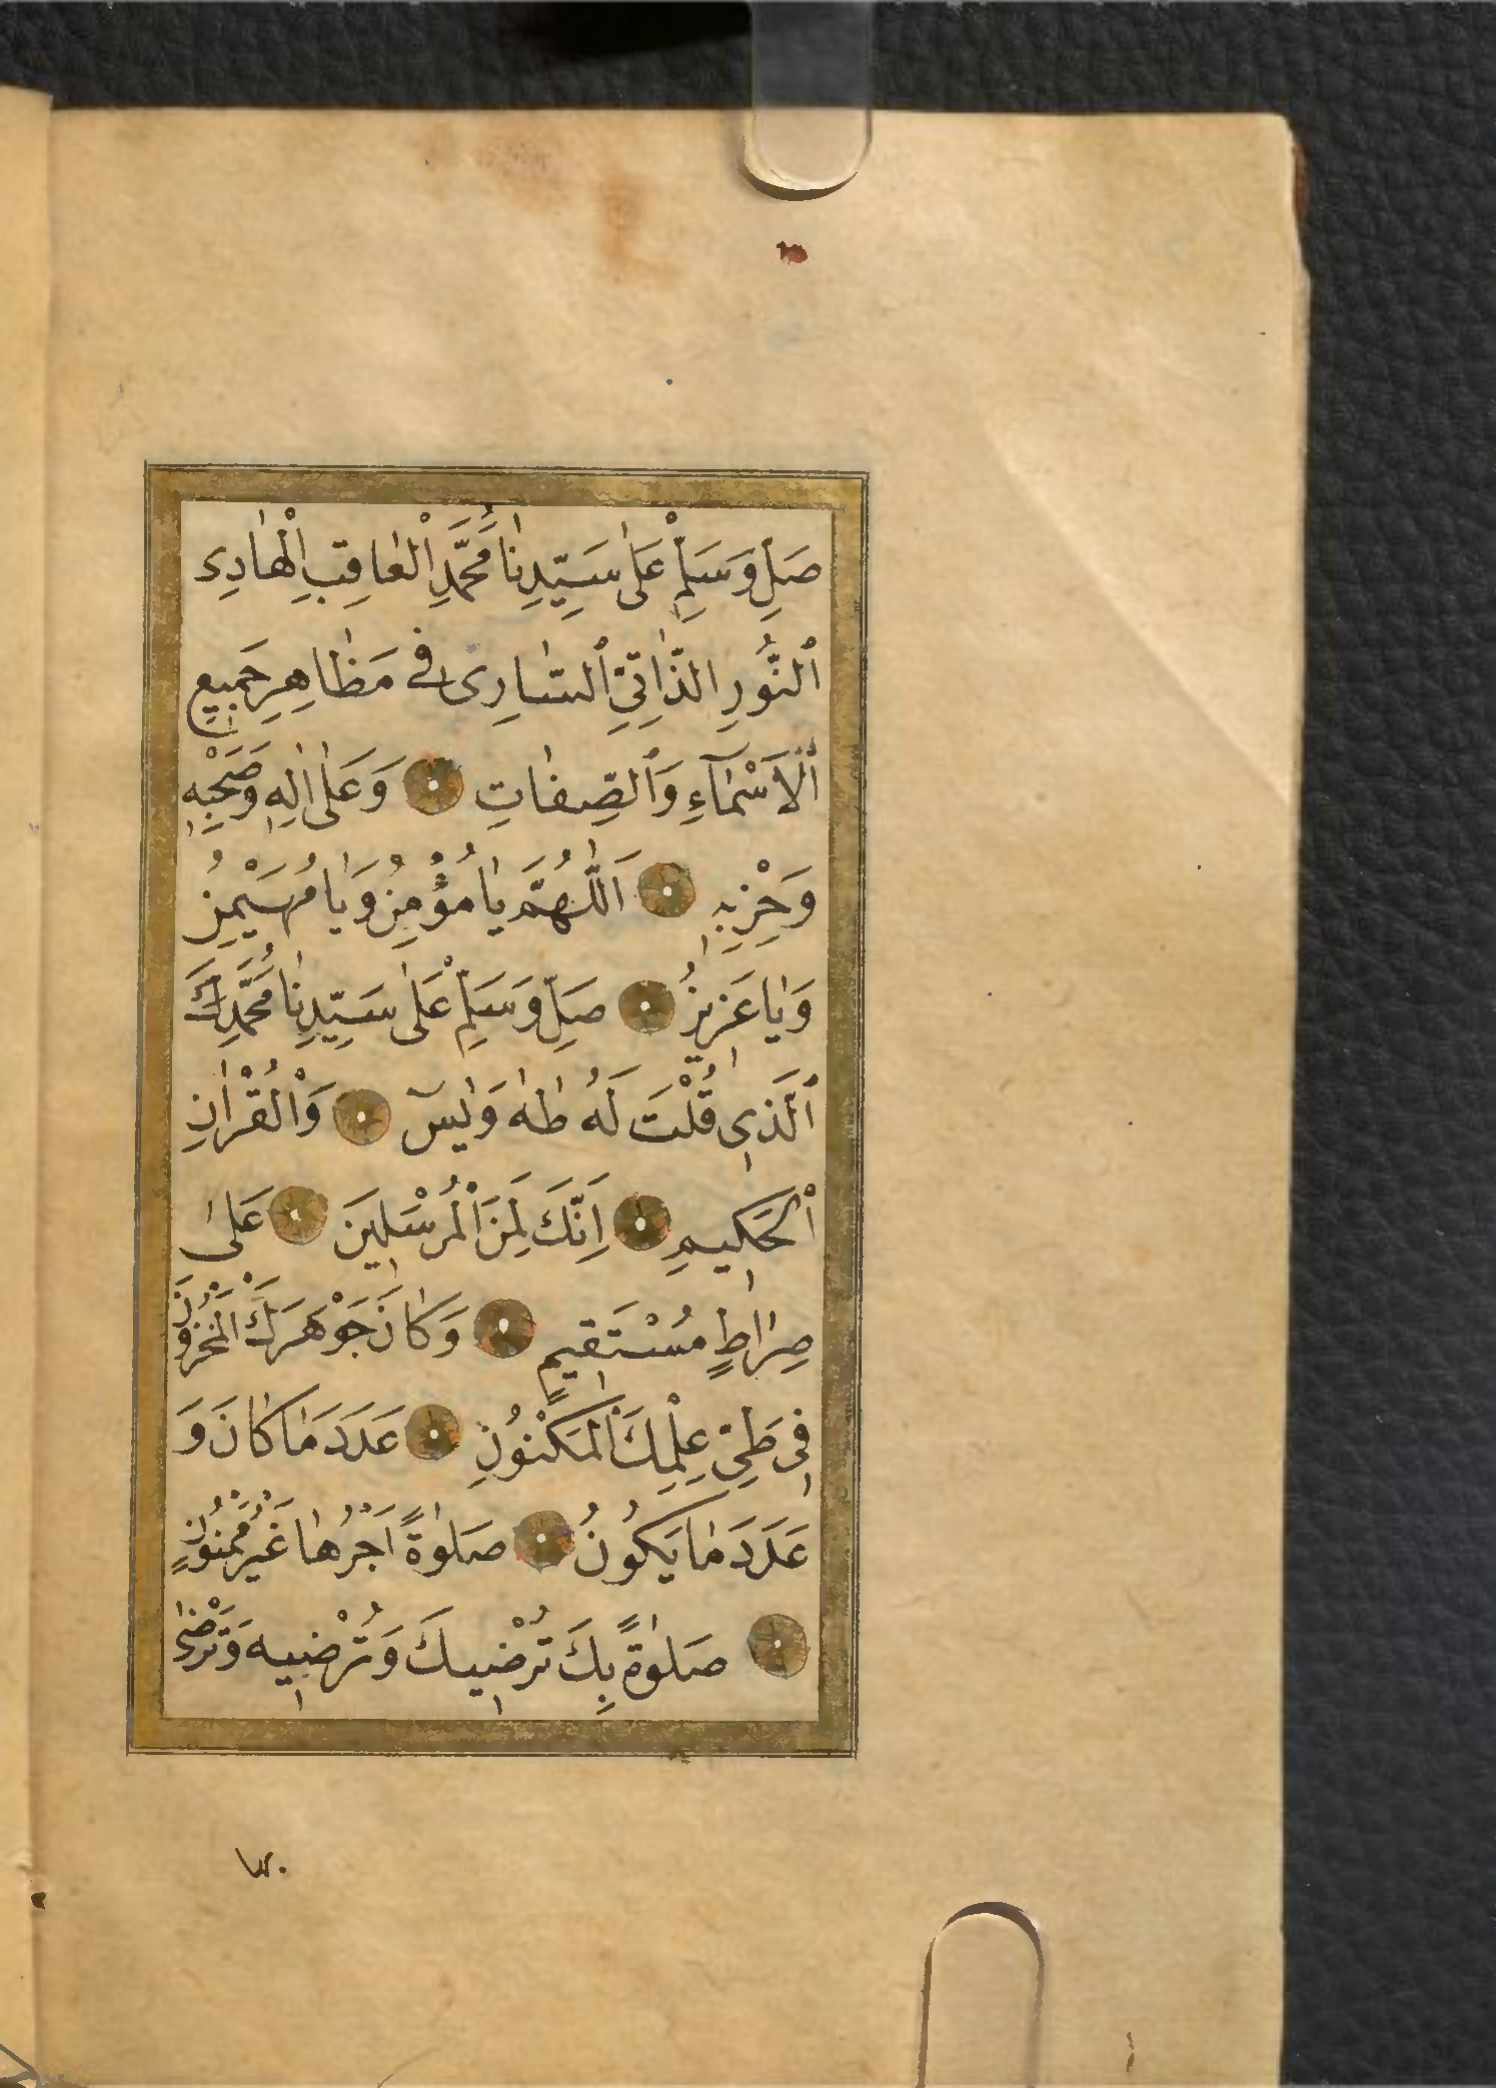 صَلِّ وَسَلِّمْ عَلٰى سَيِّدِنَا مُحَمَّدِ الْعَاقِبِ الْهَادِى
اَلنُّورِ الذَّاتِىِّ السَّارِى فِى مَظَاهِرِ جَمِيعِ
الْاَسْمَآءِ وَالصِّفَاتِ وَعَلٰى اٰلِهِ وَصَحْبِهِ
وَحِزْبِهِ اَللّٰهُمَّ يَا مُؤْمِنُ وَيَا مُهَيْمِنُ
وَيَا عَزِيزُ صَلِّ وَسَلِّمْ عَلٰى سَيِّدِنَا مُحَمَّدِكَ
الَّذِى قُلْتَ لَهُ طٰهٰ وَيٰسٓ وَالْقُرْاٰنِ
الْحَكِيمِ اِنَّكَ لَمِنَ الْمُرْسَلِينَ عَلٰى
صِرَاطٍ مُسْتَقِيمٍ وَكَانَ جَوْهَرَكَ الْمَخْزُونَ
فِى طَىِّ عِلْمِكَ الْمَكْنُونِ عَدَدَ مَا كَانَ وَ
عَدَدَ مَا يَكُونُ صَلٰوةً اَجْرُهَا غَيْرُ مَمْنُونٍ
صَلٰوةً بِكَ تُرْضِيكَ وَتُرْضِيهِ وَتَرْضٰى